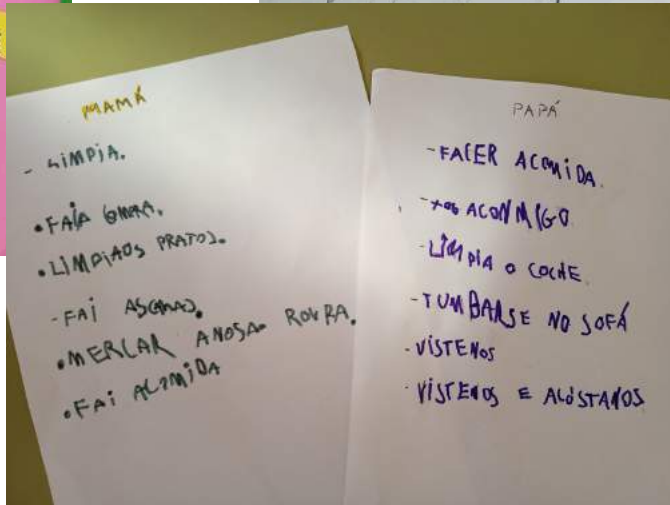 MAMÁ
- LIMPIA.
• FAI A
• LIMPIAOS PRATOS.
- FAI ASCAMAS.
• MERCAR ANOSA ROUPA.
• FAI ACOMIDA
PAPÁ
- FACER ACOMIDA.
- XOGACONMIGO
- LIMPIA O COCHE.
- TUMBARSE NO SOFÁ
- VÍSTENOS
- VÍSTENOS E ACÓSTANOS